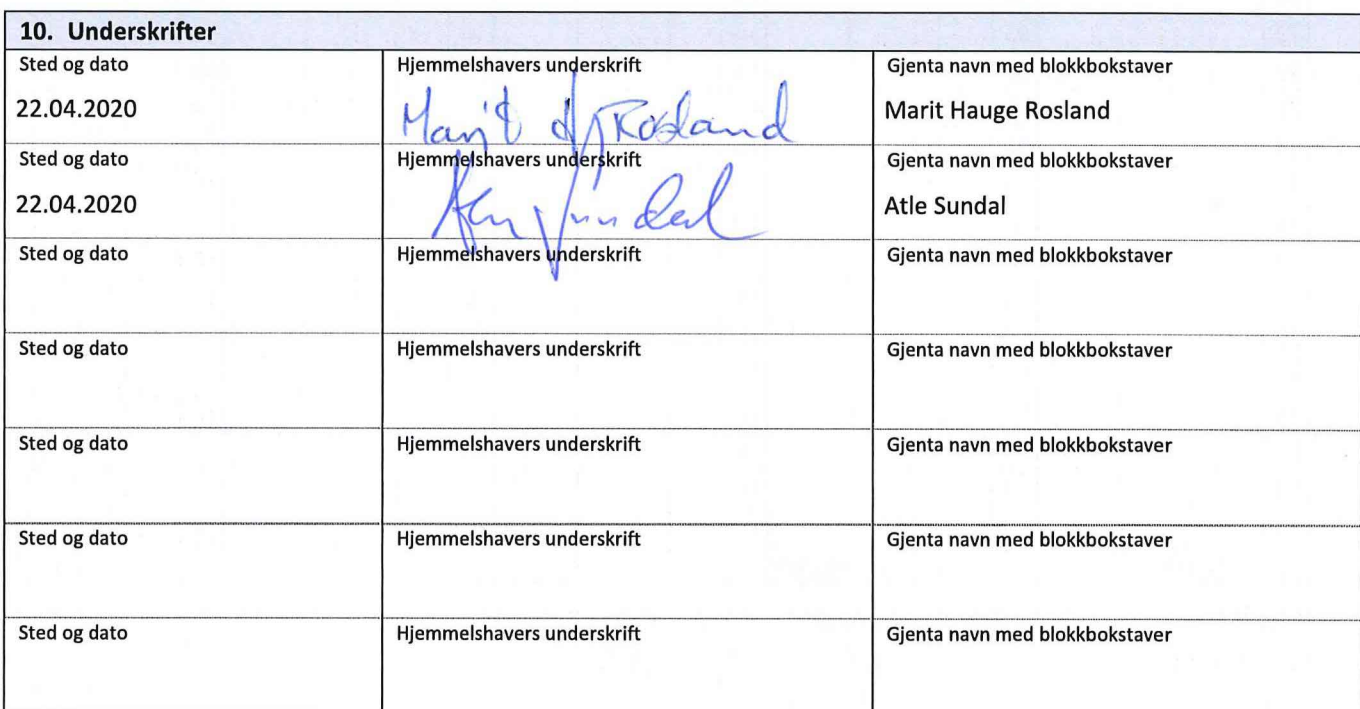 10. Underskrifter
Sted og dato Hjemmelshavers underskrift Gjenta navn med blokkbokstaver
22.04.2020 Marit H Rosland Marit Hauge Rosland
Sted og dato Hjemmelshavers underskrift Gjenta navn med blokkbokstaver
22.04.2020 Atle Sundal Atle Sundal
Sted og dato Hjemmelshavers underskrift Gjenta navn med blokkbokstaver
Sted og dato Hjemmelshavers underskrift Gjenta navn med blokkbokstaver
Sted og dato Hjemmelshavers underskrift Gjenta navn med blokkbokstaver
Sted og dato Hjemmelshavers underskrift Gjenta navn med blokkbokstaver
Sted og dato Hjemmelshavers underskrift Gjenta navn med blokkbokstaver